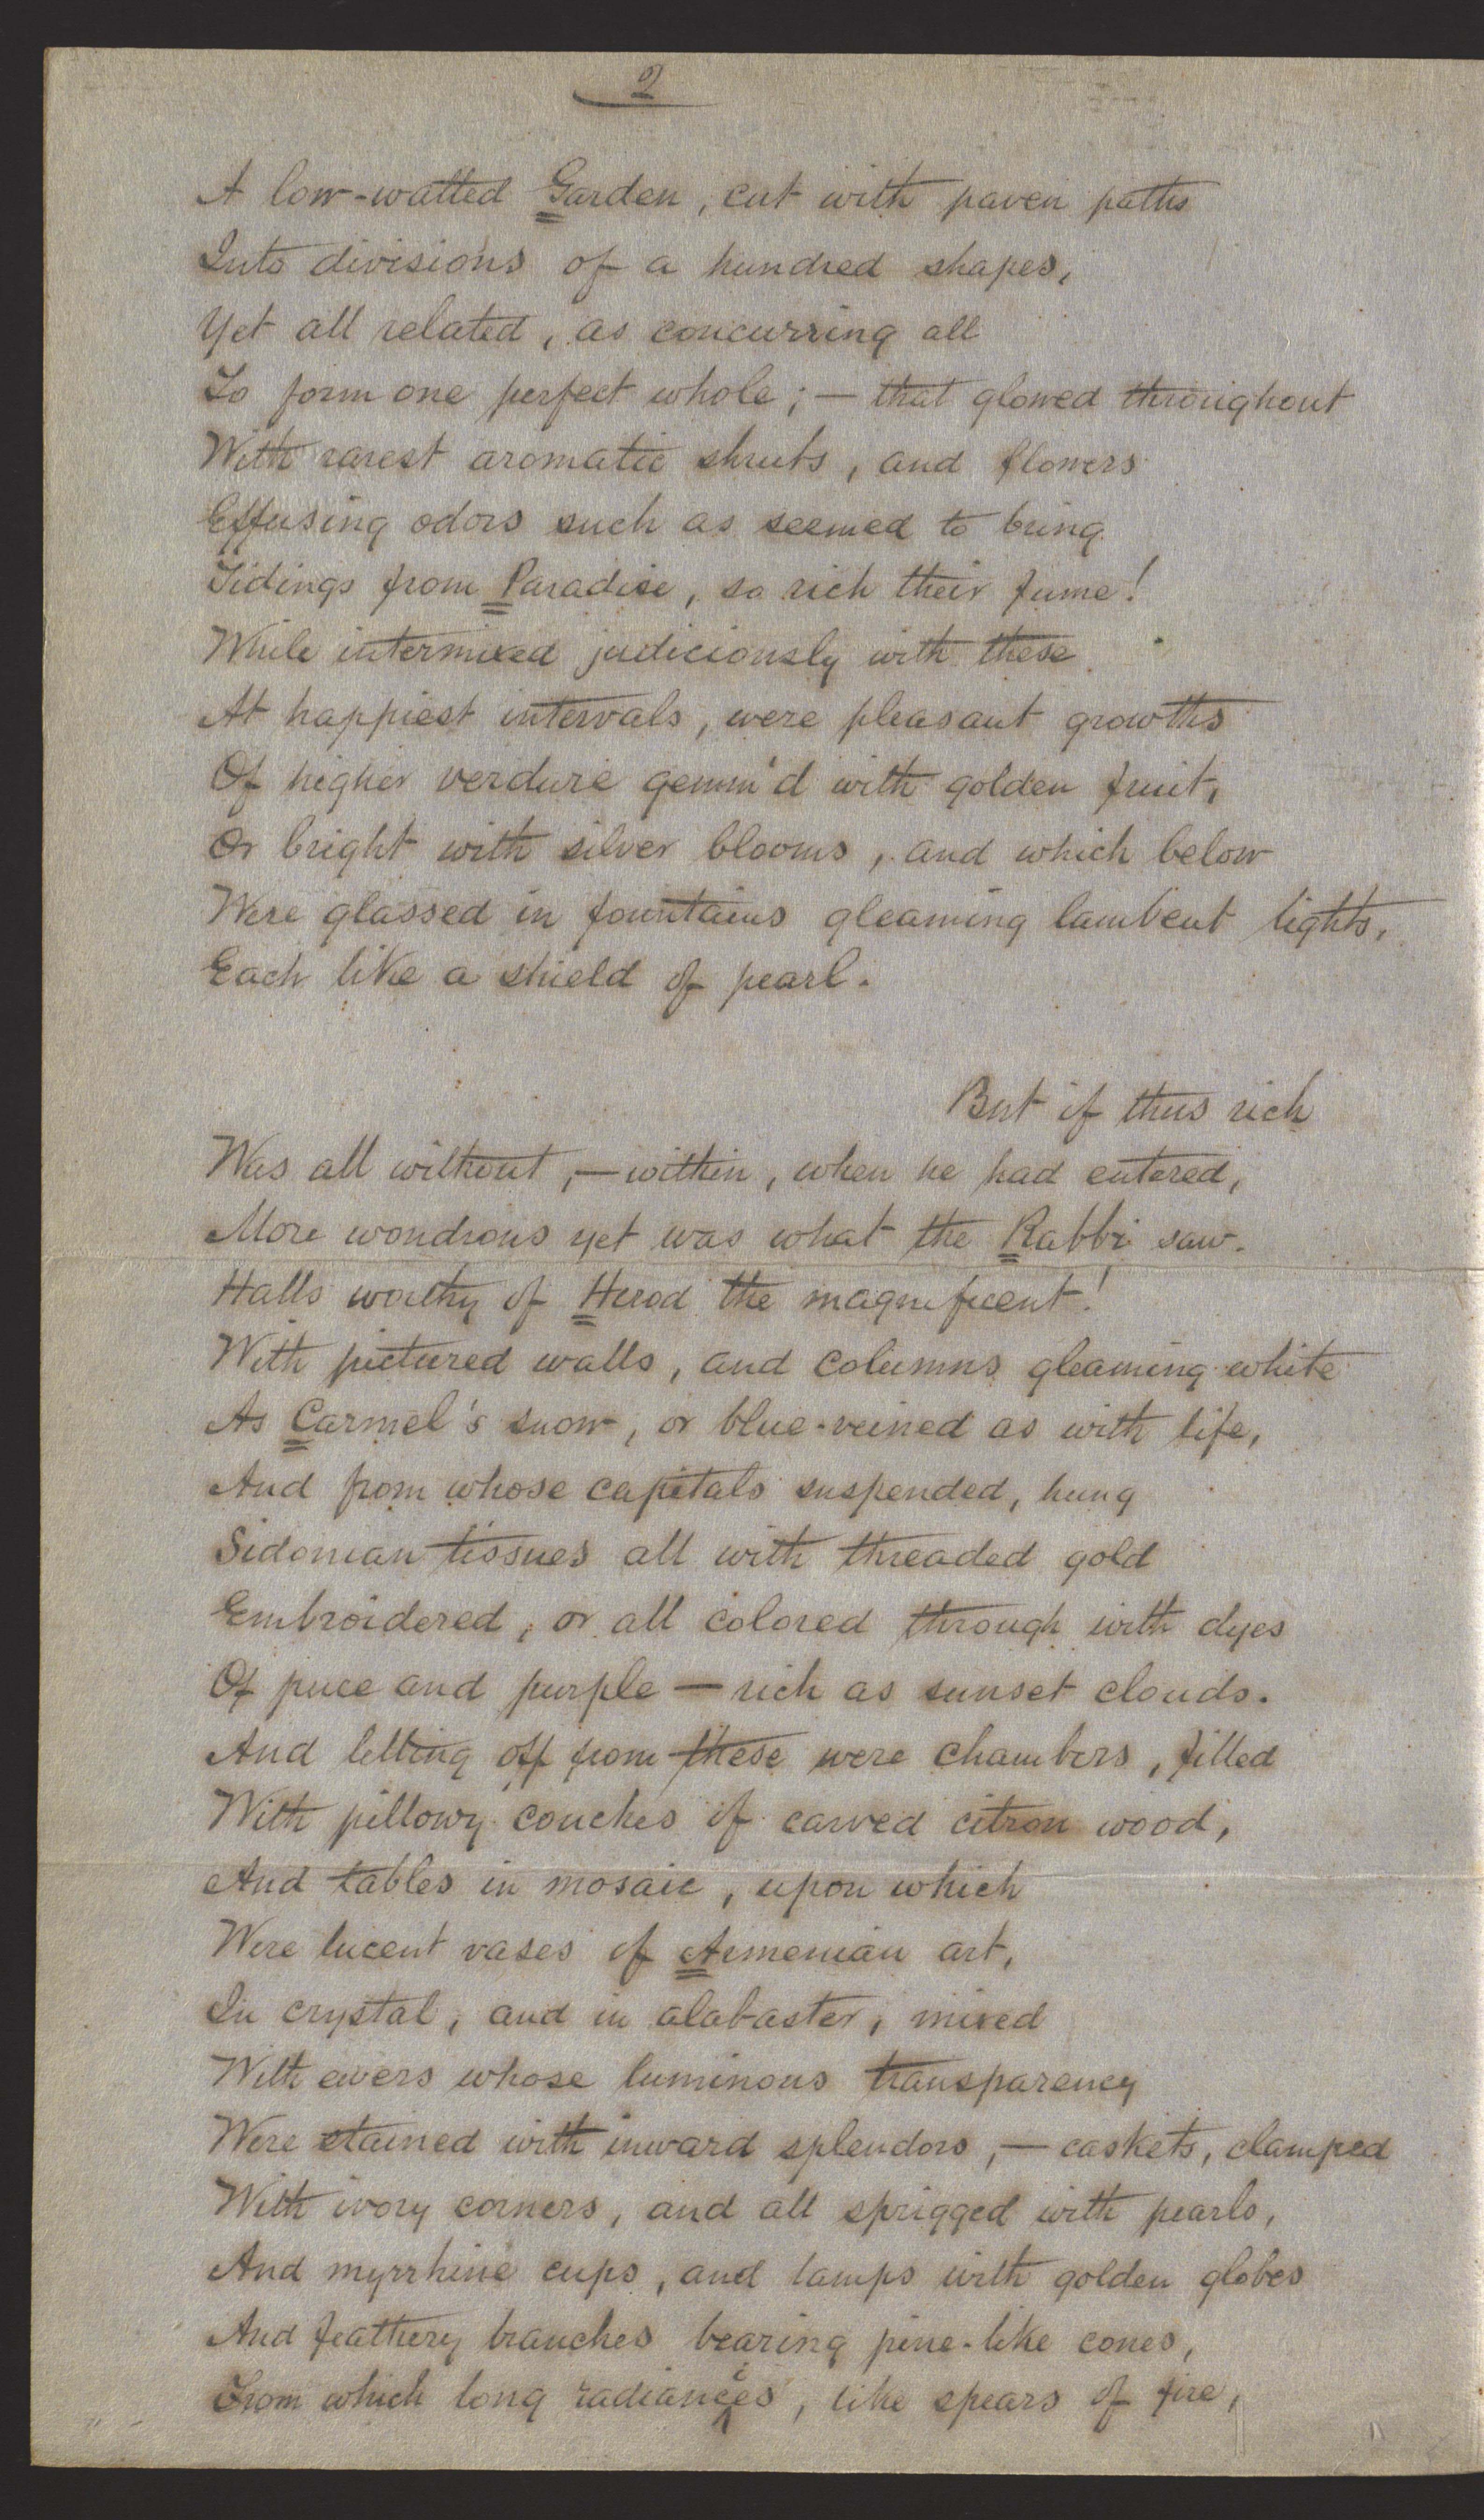 2
A low-walled Garden, cut with paven paths
Into divisions of a hundred shapes,
Yet all related, as concurring all
To form one perfect whole; — that glowed throughout
With rarest aromatic shrubs, and flowers
Effusing odors such as seemed to bring
Tidings from Paradise, so rich their fume!
While intermixed judiciously with these
At happiest intervals, were pleasant growths
Of higher verdure gemm'd with golden fruit,
Or bright with silver blooms, and which below
Were glassed in fountains gleaming lambent lights,
Each like a shield of pearl.
But if thus rich
Was all without, — within, when he had entered,
More wondrous yet was what the Rabbi saw.
Halls worthy of Herod the magnificent!
With pictured walls, and columns gleaming white
As Carmel's snow, or blue-veined as with life,
And from whose capitals suspended, hung
Sidonian tissues all with threaded gold
Embroidered, or all colored through with dyes
Of puce and purple — rich as sunset clouds.
And letting off from these were chambers, filled
With pillowy couches of carved citron wood,
And tables in mosaic, upon which
Were lucent vases of Armenian art,
In crystal, and in alabaster, mixed
With ewers whose luminous transparency
Were stained with inward splendors, — caskets, clamped
With ivory corners, and all sprigged with pearls,
And myrrhine cups, and lamps with golden globes
And feathery branches bearing pine-like cones,
From which long radiances, like spears of fire,